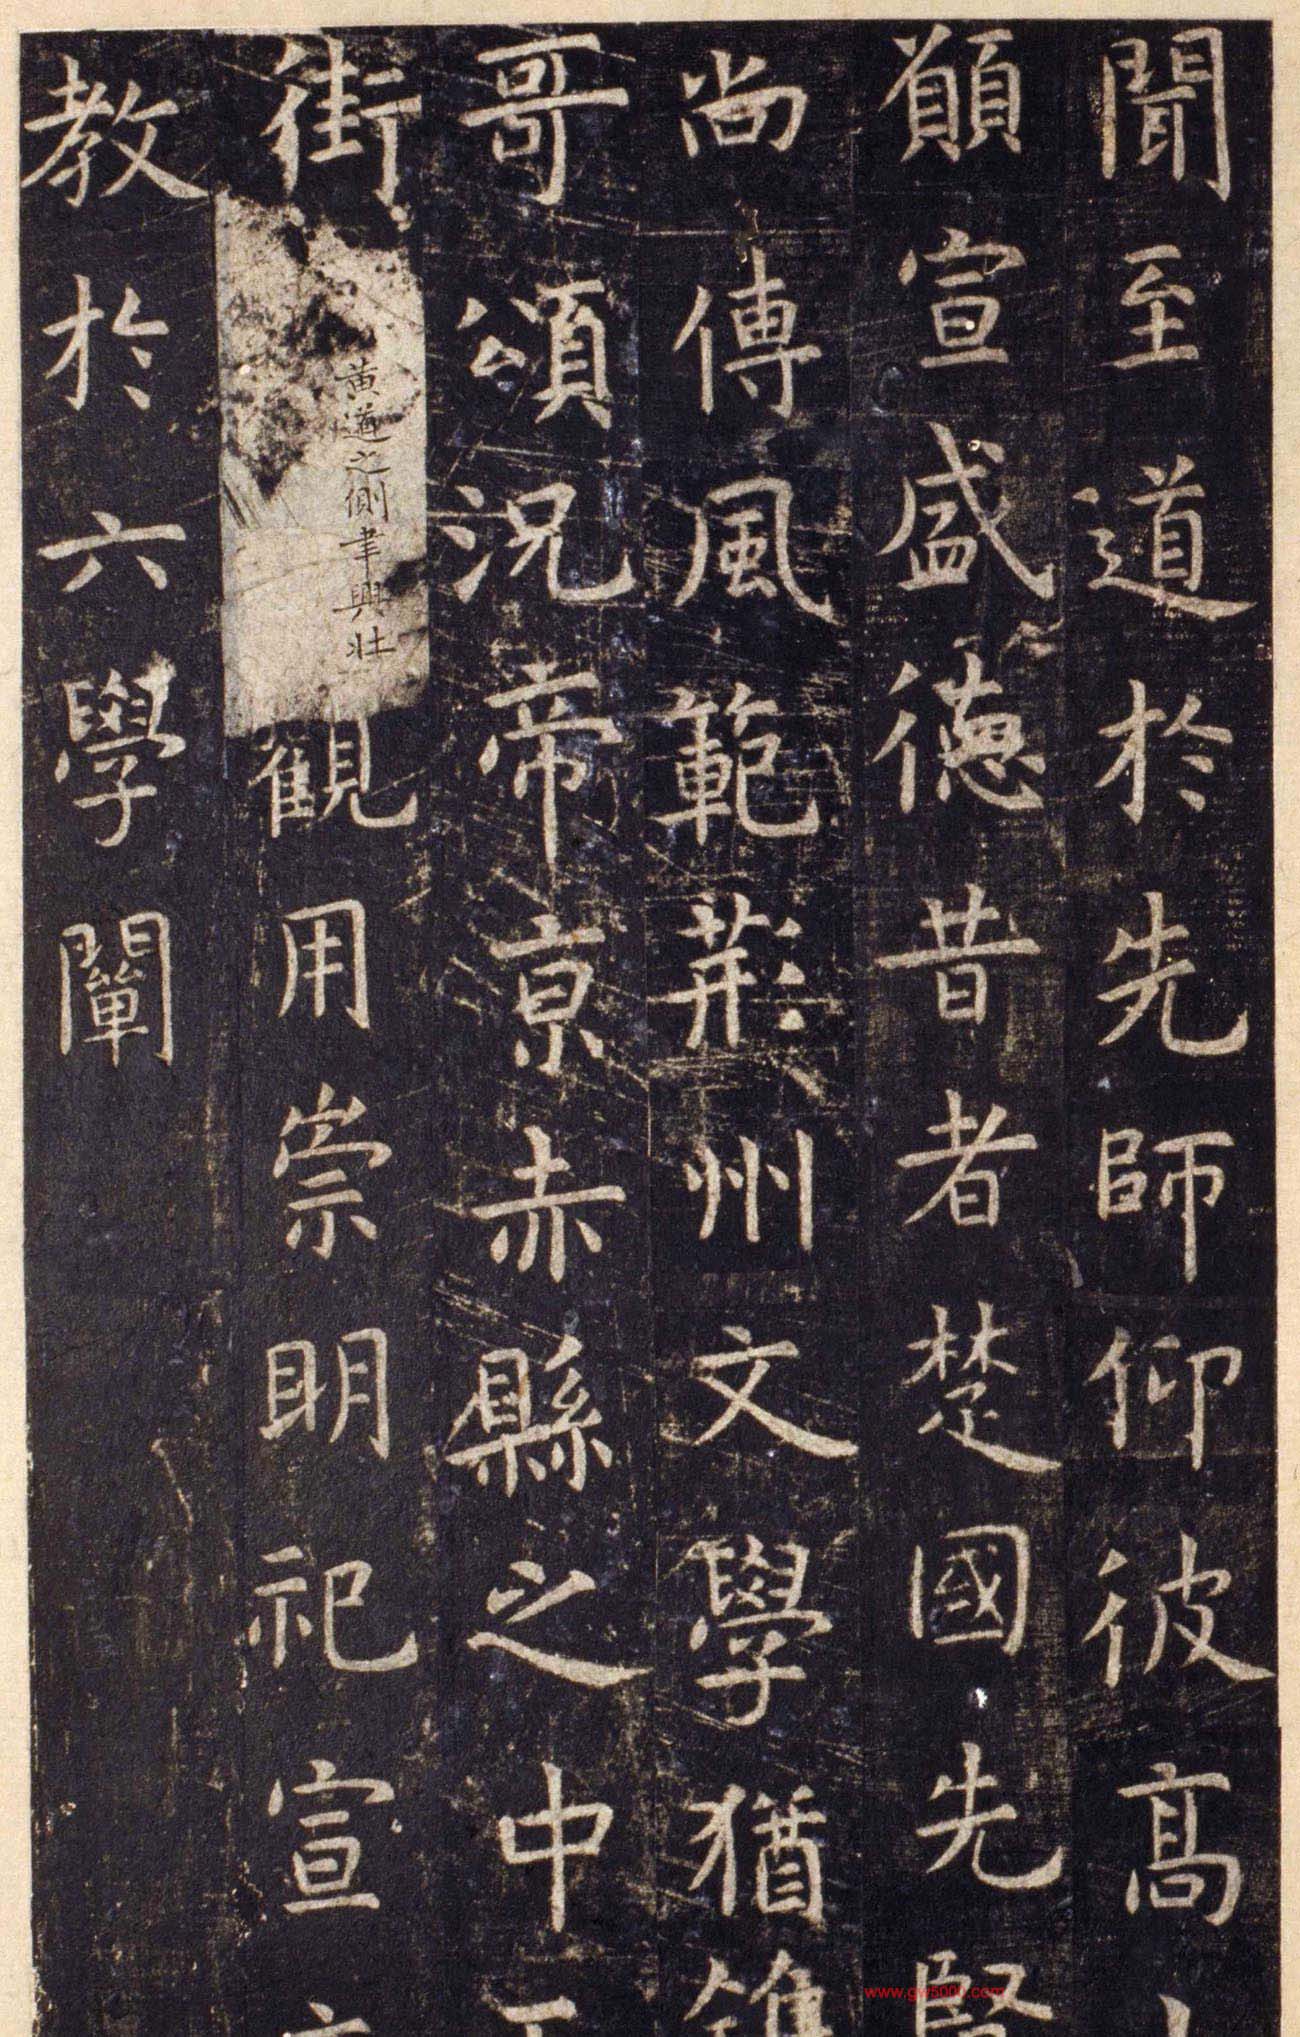 聞至道於先師仰彼高
願宣盛德昔者楚國先賢
尚傳風範荊州文學猶鐫
哥頌況帝京赤縣之中
街
黃道之側聿興壯
觀用崇明祀宣
教於六學闡
www.gw5000.com